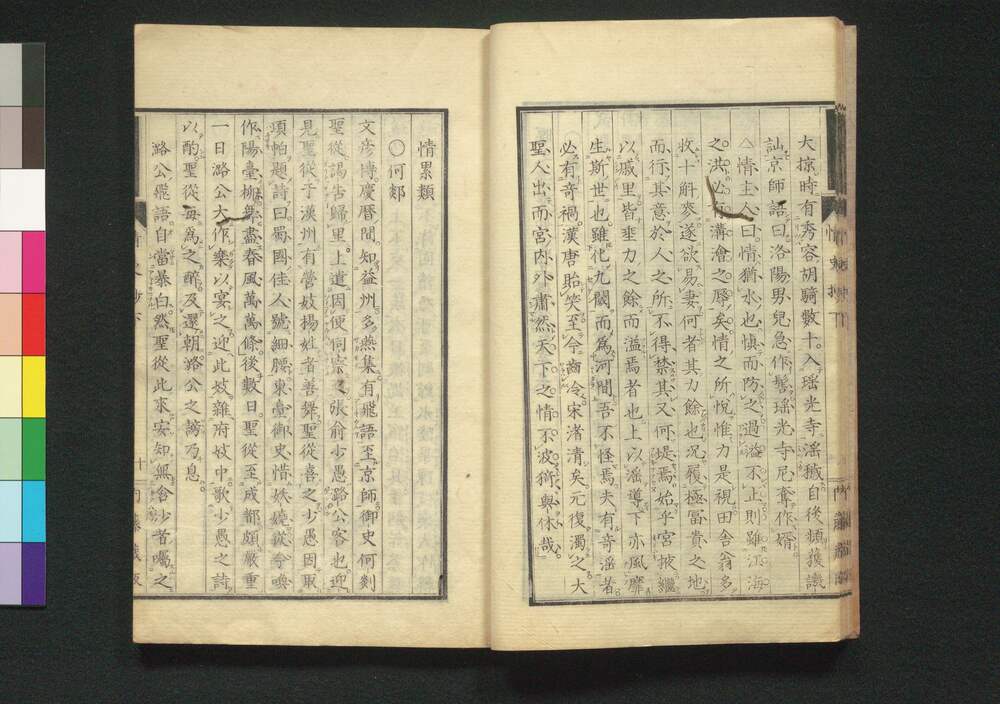 大掠時有秀容胡騎數十入瑶光寺滛穢自後頗獲譏
訕京師語曰洛陽男兒急作髻瑶光寺尼奪作壻
△情主人曰情猶水也慎而防之過溢不止則雖江海
之洪必有溝澮之辱矣情之所悅惟力是視田舎翁多
收十斛麥遂欲易妻何者其力餘也况履極冨貴之地
而行其意於人之所不得禁其又何堤焉始乎宮掖繼
以戚里皆垂力之餘而溢焉者也上以滛導下亦風靡
生斯世也雖化九閽而為河間吾不怪焉夫有奇滛者
必有奇禍漢唐貽笑至今齒冷宋渚清矣元復濁之大
聖人出而宮内外肅然天下之情不波猗與休哉
情累類
〇何郯
文彦博慶曆間知益州多燕集有飛語至京師御史何剡
聖從謁告歸里上遣因便伺察之張俞少愚潞公客也迎
見聖從于漢州有營妓楊姓者善舞聖從喜之少愚因取
項帕題詩曰蜀國佳人號細腰東臺御史惜妖嬈從今喚
作陽臺柳舞盡春風萬萬條後數日聖從至成都頗嚴重
一日潞公大作樂以宴之迎此妓雜府妓中歌少愚之詩
以酌聖從每為之醉及還朝潞公之謗乃息
潞公飛語自當暴白然聖從此來安知無舍沙者囑之